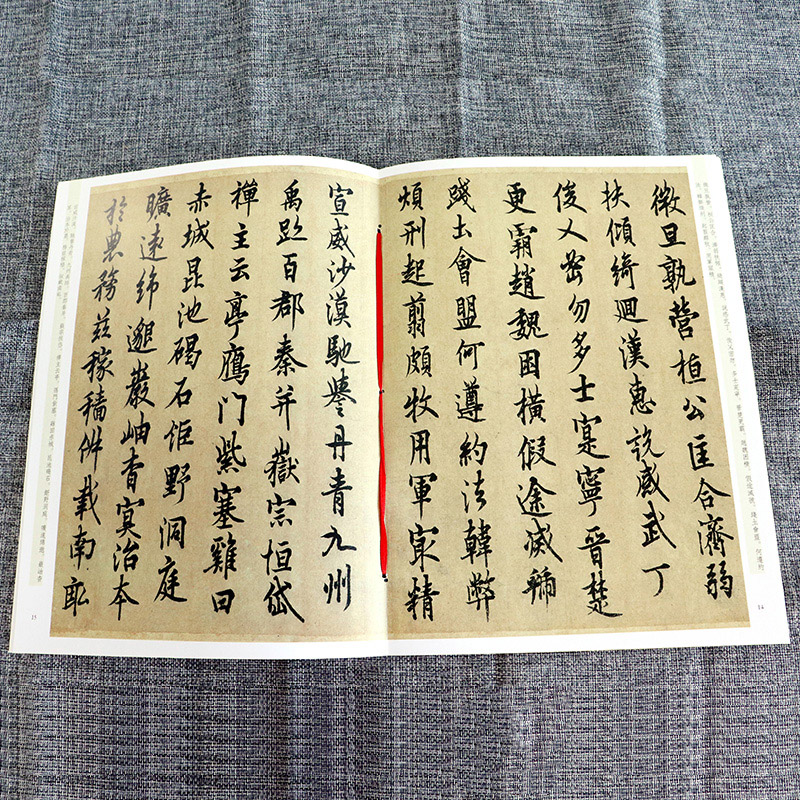 微旦孰營桓公匡合濟弱
扶傾綺迴漢惠說感武丁
俊乂密勿多士寔寧晉楚
更霸趙魏困橫假途滅虢
踐土會盟何遵約法韓弊
煩刑起翦頗牧用軍冣精
14
宣威沙漠馳譽丹青九州
禹跡百郡秦并嶽宗恒岱
禪主云亭鴈門紫塞雞田
赤城昆池碣石鉅野洞庭
曠遠綿邈巖岫杳冥治本
於農務茲稼穡俶載南畝
15